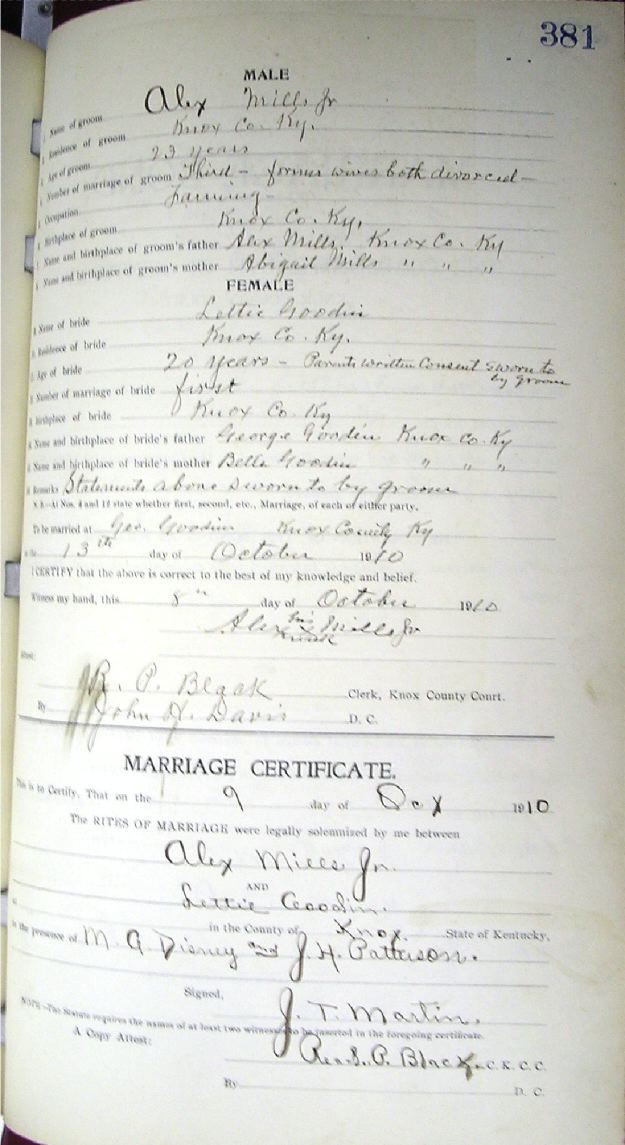 381
MALE
Name of groom Alex Mills Jr
Residence of groom Knox Co. Ky.
Age of groom 23 years
Number of marriage of groom Third - former wives both divorced -
Occupation Farming -
Birthplace of groom Knox Co. Ky,
Name and birthplace of groom's father Alex Mills. Knox Co. Ky
Name and birthplace of groom's mother Abigail Mills " " "
FEMALE
Name of bride Lettie Goodin
Residence of bride Knox Co. Ky.
Age of bride 20 years - Parents written Consent sworn to
by groom
Number of marriage of bride first
Birthplace of bride Knox Co. Ky
Name and birthplace of bride's father George Goodin Knox Co. Ky
Name and birthplace of bride's mother Belle Goodin " " "
Remarks Statements above sworn to by groom
N. B.—At Nos. 4 and 12 state whether first, second, etc., Marriage, of each of either party.
To be married at Geo. Goodin Knox County Ky
13th day of October 1910
I CERTIFY that the above is correct to the best of my knowledge and belief.
Witness my hand, this 8" day of October 1910
his
Alex x Mills Jr
mark
Attest:
R. P. Black Clerk, Knox County Court.
By John H. Davis D. C.
MARRIAGE CERTIFICATE.
This is to Certify, That on the 9 day of Oct 1910
The RITES OF MARRIAGE were legally solemnized by me between
Alex Mills Jr.
AND
Lettie Goodin.
at in the County of Knox. State of Kentucky,
in the presence of M. G. Disney and J. H. Patterson.
Signed, J. T. Martin.
NOTE—The Statute requires the names of at least two witnesses to be inserted in the foregoing certificate.
A Copy Attest: Black C.K.C.C.
By D. C.